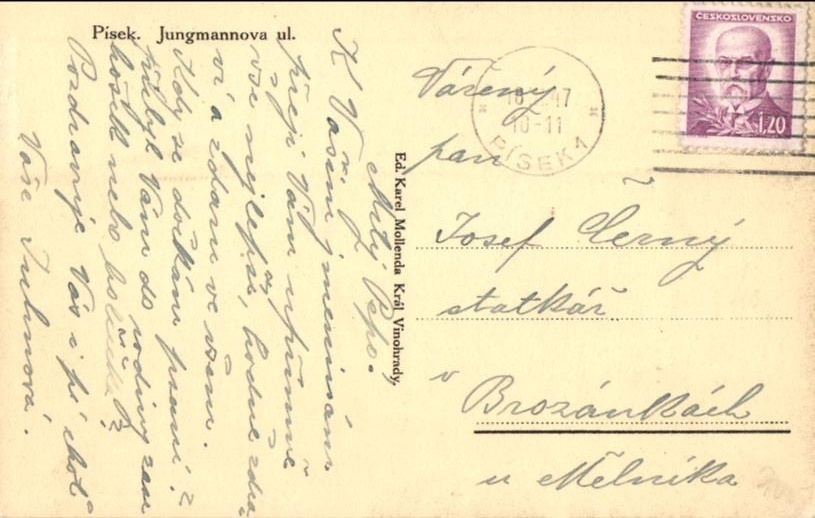 Písek. Jungmannova ul.
Milý Pepo.
K Vašim jmeninám
přeji Vám upřímně
vše nejlepší, hodně zdra-
ví a zdaru ve všem.
Kdy se dočkám psaní?
přibyl Vám do rodiny zase
hošík nebo holčička?
Pozdravuje Vás i pí choť
Vaše
Ed. Karel Mollenda Král. Vinohrady.
ČESKOSLOVENSKO
1.20
47
10-11
PÍSEK 1
Vážený
pan
Josef Černý
statkář
v Brozánkách
u Mělníka